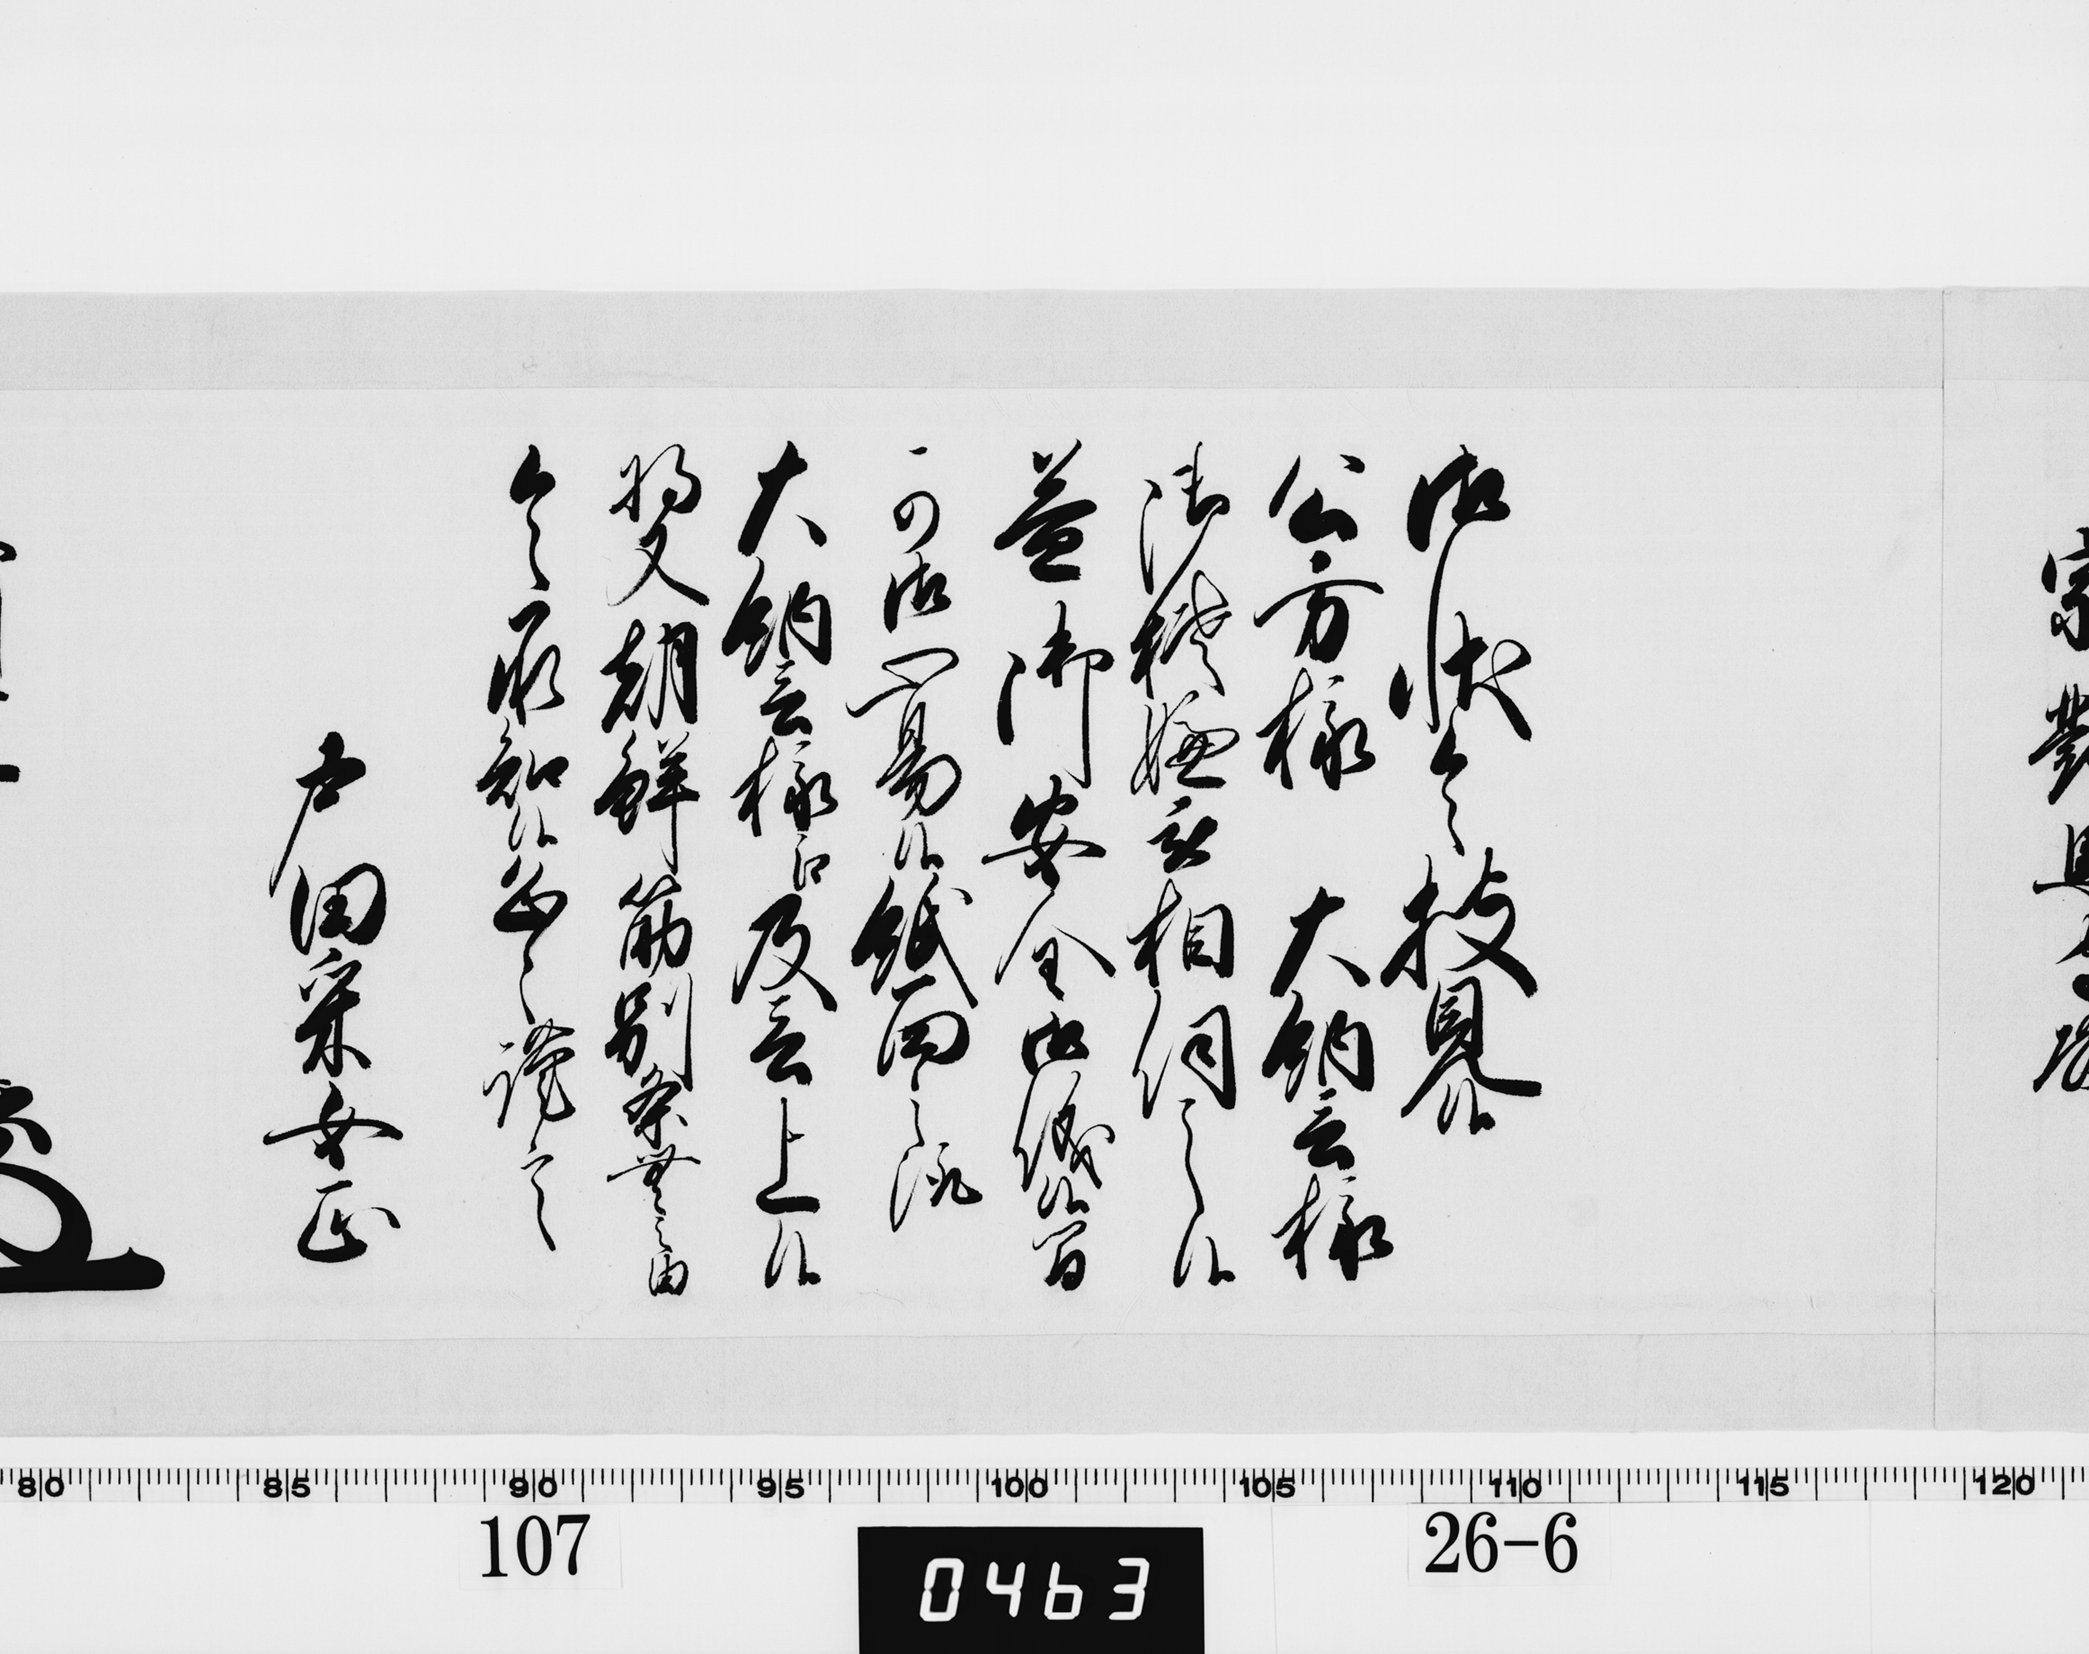 宗對馬守殿
御状令披見候
公方様 大納言様
御機嫌被相伺之候
益御安全御儀候間
可御心易候紙面之趣
大納言様江及言上候
将又朝鮮筋別条無之由
令承知候恐々謹言
戸田采女正
80 85 90 95 100 105 110 115 120
107 26-6
0463